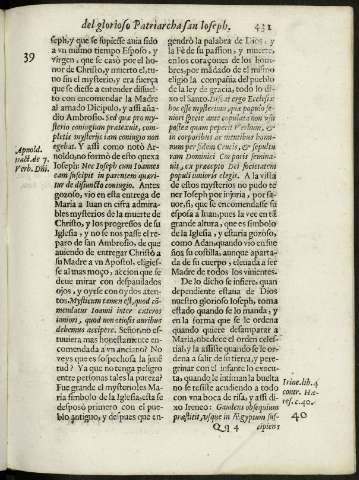 del glorioso Patriarcha san Ioseph. 431
39
seph, y que se supiesse auia sido
a vn mismo tiempo Esposo, y
virgen, que se casò por el ho-
nor de Christo, y muerto el, tu-
uo fin el mysterio, y era fuerça
que se diesse a entender dissuel-
to con encomendar la Madre
al amado Dicipulo, y assi aña-
dio Ambrosio. Sed quæ pro my-
sterio coniugium prætexuit, com-
pletis mysterijs iam coniugio non
egebat. Y assi como notò Ar-
noldo, no formò de esto quexa
Ioseph: Nec Ioseph cum Ioannes
eam suscipit in parentem quæri-
tur de disiuncto coniugio. Antes
gozoso, vio en esta entrega de
Maria a Iuan en cifra admira-
bles mysterios de la muerte de
Christo, y los progressos de su
Iglesia, y no se nos passe el re-
paro de san Ambrosio, de que
auiendo de entregar Christo à
su Madre a vn Apostol, eligies-
se al mas moço, accion que se
deue mirar con despauilados
ojos, y oyrse con oydos aten-
tos. Mysticum tamen est, quod cõ-
mendatur Ioanni inter cæteros
iuniori, quod non otiosis auribus
debemus accipere. Señor, no es-
tuuiera mas honestamente en-
comendada a vn anciano? No
veys que es sospechosa la juuē-
tud? Ya que no tenga peligro
entre personas tales la pureça?
Fue grande el mysterio: es Ma-
ria simbolo de la Iglesia, esta se
desposò primero con el pue-
blo antiguo, y despues que en-
Arnold.
tract. de 7.
Verb. Dñi.
gendrò la palabra de Dios, y
la Fè de su passion, y muerte,
en los coraçones de los hom-
bres, por mãdado de el mismo
eligio la compañia del pueblo
de la ley de gracia, todo lo di-
xo el Santo.
populi iunioris elegit. A la vista
de estos mysterios no pudo te-
ner Ioseph por injuria, por fa-
uor, si, que se encomendasse su
esposa a Iuan, pues la ve en tã
grande altura, que es simbolo
de la Iglesia, y estaria gozoso,
como Adan, quando vio en sue-
ños su costilla, aunque aparta-
da de su cuerpo, eleuada a ser
Madre de todos los viuientes.
De lo dicho se infiere, quan
dependiente estaua de Dios
nuestro glorioso Ioseph, toma
estado quando se lo manda, y
en la forma que se le ordena
quando quiere desamparar a
Maria, obedece el orden celes-
tial, y la assiste quando se le or-
dena a salir de su tierra, y pere-
grinar con el infante lo execu-
ta, quando le intiman la buelta
no se resiste acudiendo a todo
con vna boca de risa, y assi di-
xo Ireneo: Gaudens obsequium
præstitit, vsque in Ægyptum sus-
Irine. lib. 4
contr. Hæ-
res. c. 40.
40
Qq 4 cipiens